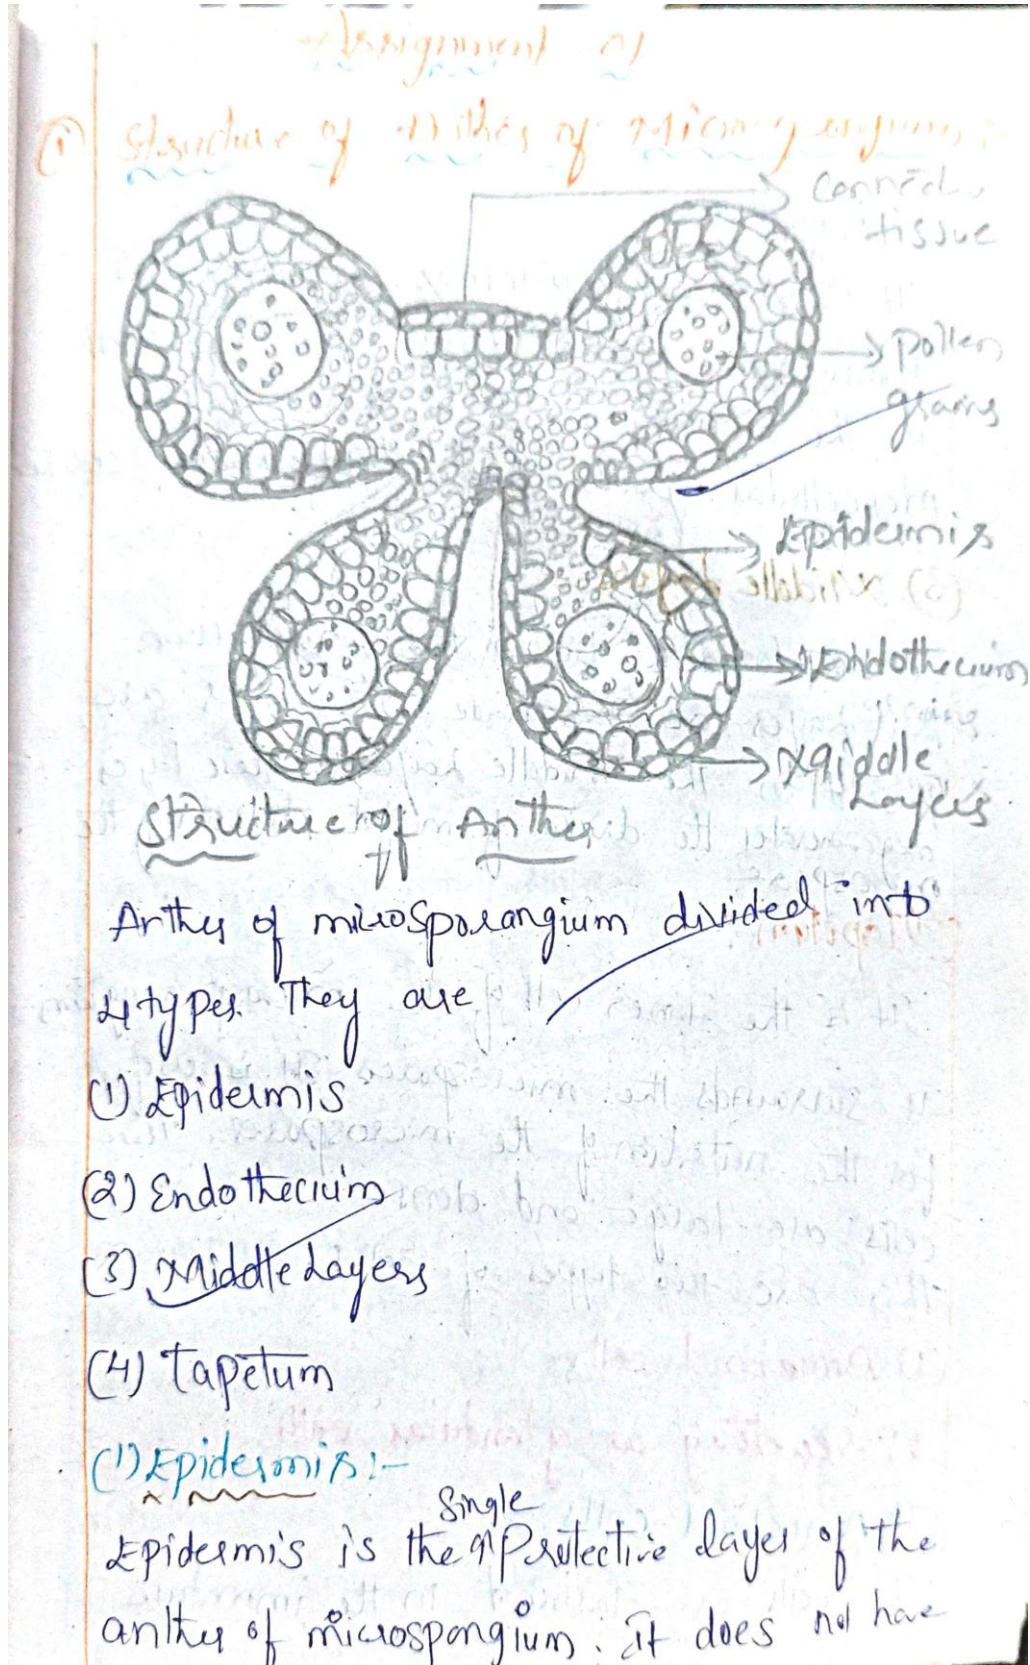 Assignment 01
(1) Structure of Anther of Microsporangium:-
Connective
tissue
pollen
grains
Epidermis
Endothecium
Middle
Layers
Structure of Anther
Anther of microsporangium divided into
4 types. They are
(1) Epidermis
(2) Endothecium
(3) Middle Layers
(4) tapetum
(1) Epidermis:-
Single
Epidermis is the Protective layer of the
anther of microspongium. It does not have